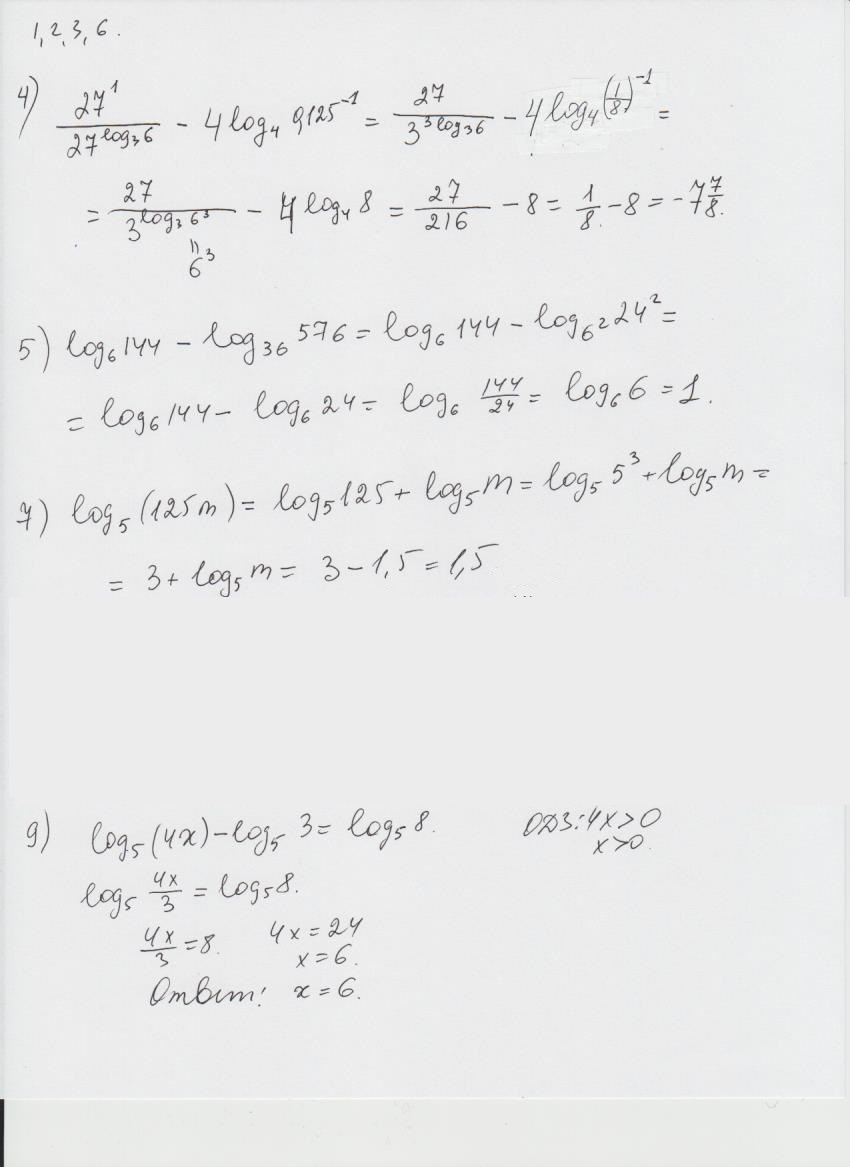 1, 2, 3, 6.
4) 27¹/27^(log₃6) - 4log₄ 0,125⁻¹ = 27/3^(3log₃6) - 4log₄(1/8)⁻¹ =
= 27/3^(log₃6³) - 4^(log₄8) = 27/216 - 8 = 1/8 - 8 = -7 7/8.
॥
6³
5) log₆144 - log₃₆576 = log₆144 - log₆²24² =
= log₆144 - log₆24 = log₆ 144/24 = log₆6 = 1.
7) log₅(125m) = log₅125 + log₅m = log₅5³ + log₅m =
= 3 + log₅m = 3 - 1,5 = 1,5
9) log₅(4x) - log₅3 = log₅8. ОДЗ: 4x>0
x>0.
log₅ 4x/3 = log₅8.
4x/3 = 8. 4x = 24
x = 6.
Ответ: x = 6.